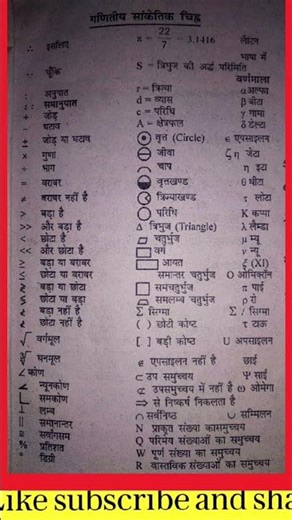 गणितीय सांकेतिक चिह्न
∴ इसलिए
π = 22/7 = 3.1416
लैटिन भाषा में वर्णमाला
∵ चूँकि
S = त्रिभुज की अर्द्ध परिमिति
: अनुपात
r = त्रिज्या
α अल्फा
:: समानुपात
d = व्यास
β बीटा
+ जोड़
c = परिधि
γ गामा
- घटाव
A = क्षेत्रफल
δ डेल्टा
± जोड़ या घटाव
वृत्त (Circle)
ε एपसाइलन
× गुणा
जीवा
ζ जेटा
÷ भाग
चाप
η इटा
= बराबर
वृत्तखण्ड
θ थीटा
≠ बराबर नहीं है
त्रिज्याखण्ड
ι लोटा
> बड़ा है
परिधि
K कप्पा
और बड़ा है
Δ त्रिभुज (Triangle)
λ लैम्डा
< छोटा है
चतुर्भुज
μ म्यू
और छोटा है
वर्ग
γ न्यू
बड़ा या बराबर
आयत
ξ (XI)
छोटा या बराबर
समान्तर चतुर्भुज
O ओमिक्रॉन
बड़ा या छोटा
समचतुर्भुज
π पाई
छोटा या बड़ा
समलम्ब चतुर्भुज
ρ रो
बड़ा नहीं है
Σ सिग्मा
Σ / सिग्मा
छोटा नहीं है
( ) छोटी कोष्ठ
τ टाऊ
√ वर्गमूल
[ ] बड़ी कोष्ठ
U अपसाइलन
घनमूल
∉ एपसाइलन नहीं है
छाई
∠ कोण
⊂ उप समुच्चय
Ψ साई
न्यूनकोण
⊄ उपसमुच्चय में नहीं है
ω ओमेगा
समकोण
⇒ से निष्कर्ष निकलता है
⊥ लम्ब
∩ सर्वनिष्ठ
∪ सम्मिलन
समानान्तर
N प्राकृत संख्या का समुच्चय
सर्वांगसम
Q परिमेय संख्याओं का समुच्चय
% प्रतिशत
W पूर्ण संख्या का समुच्चय
° डिग्री
R वास्तविक संख्याओं का समुच्चय
Like subscribe and sha